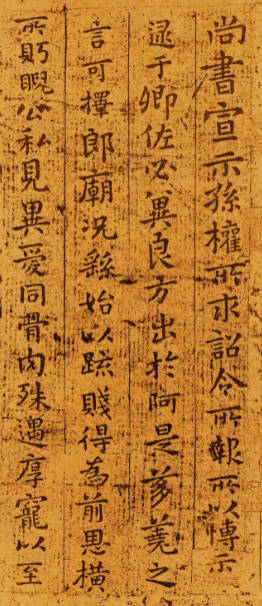 尚書宣示孫權所求詔令所報所以博示
逮于卿佐必兾良方出於阿是芻蕘之
言可擇郎廟況繇始以疏賤得為前恩橫
所眄睨公私見異愛同骨肉殊遇厚寵以至